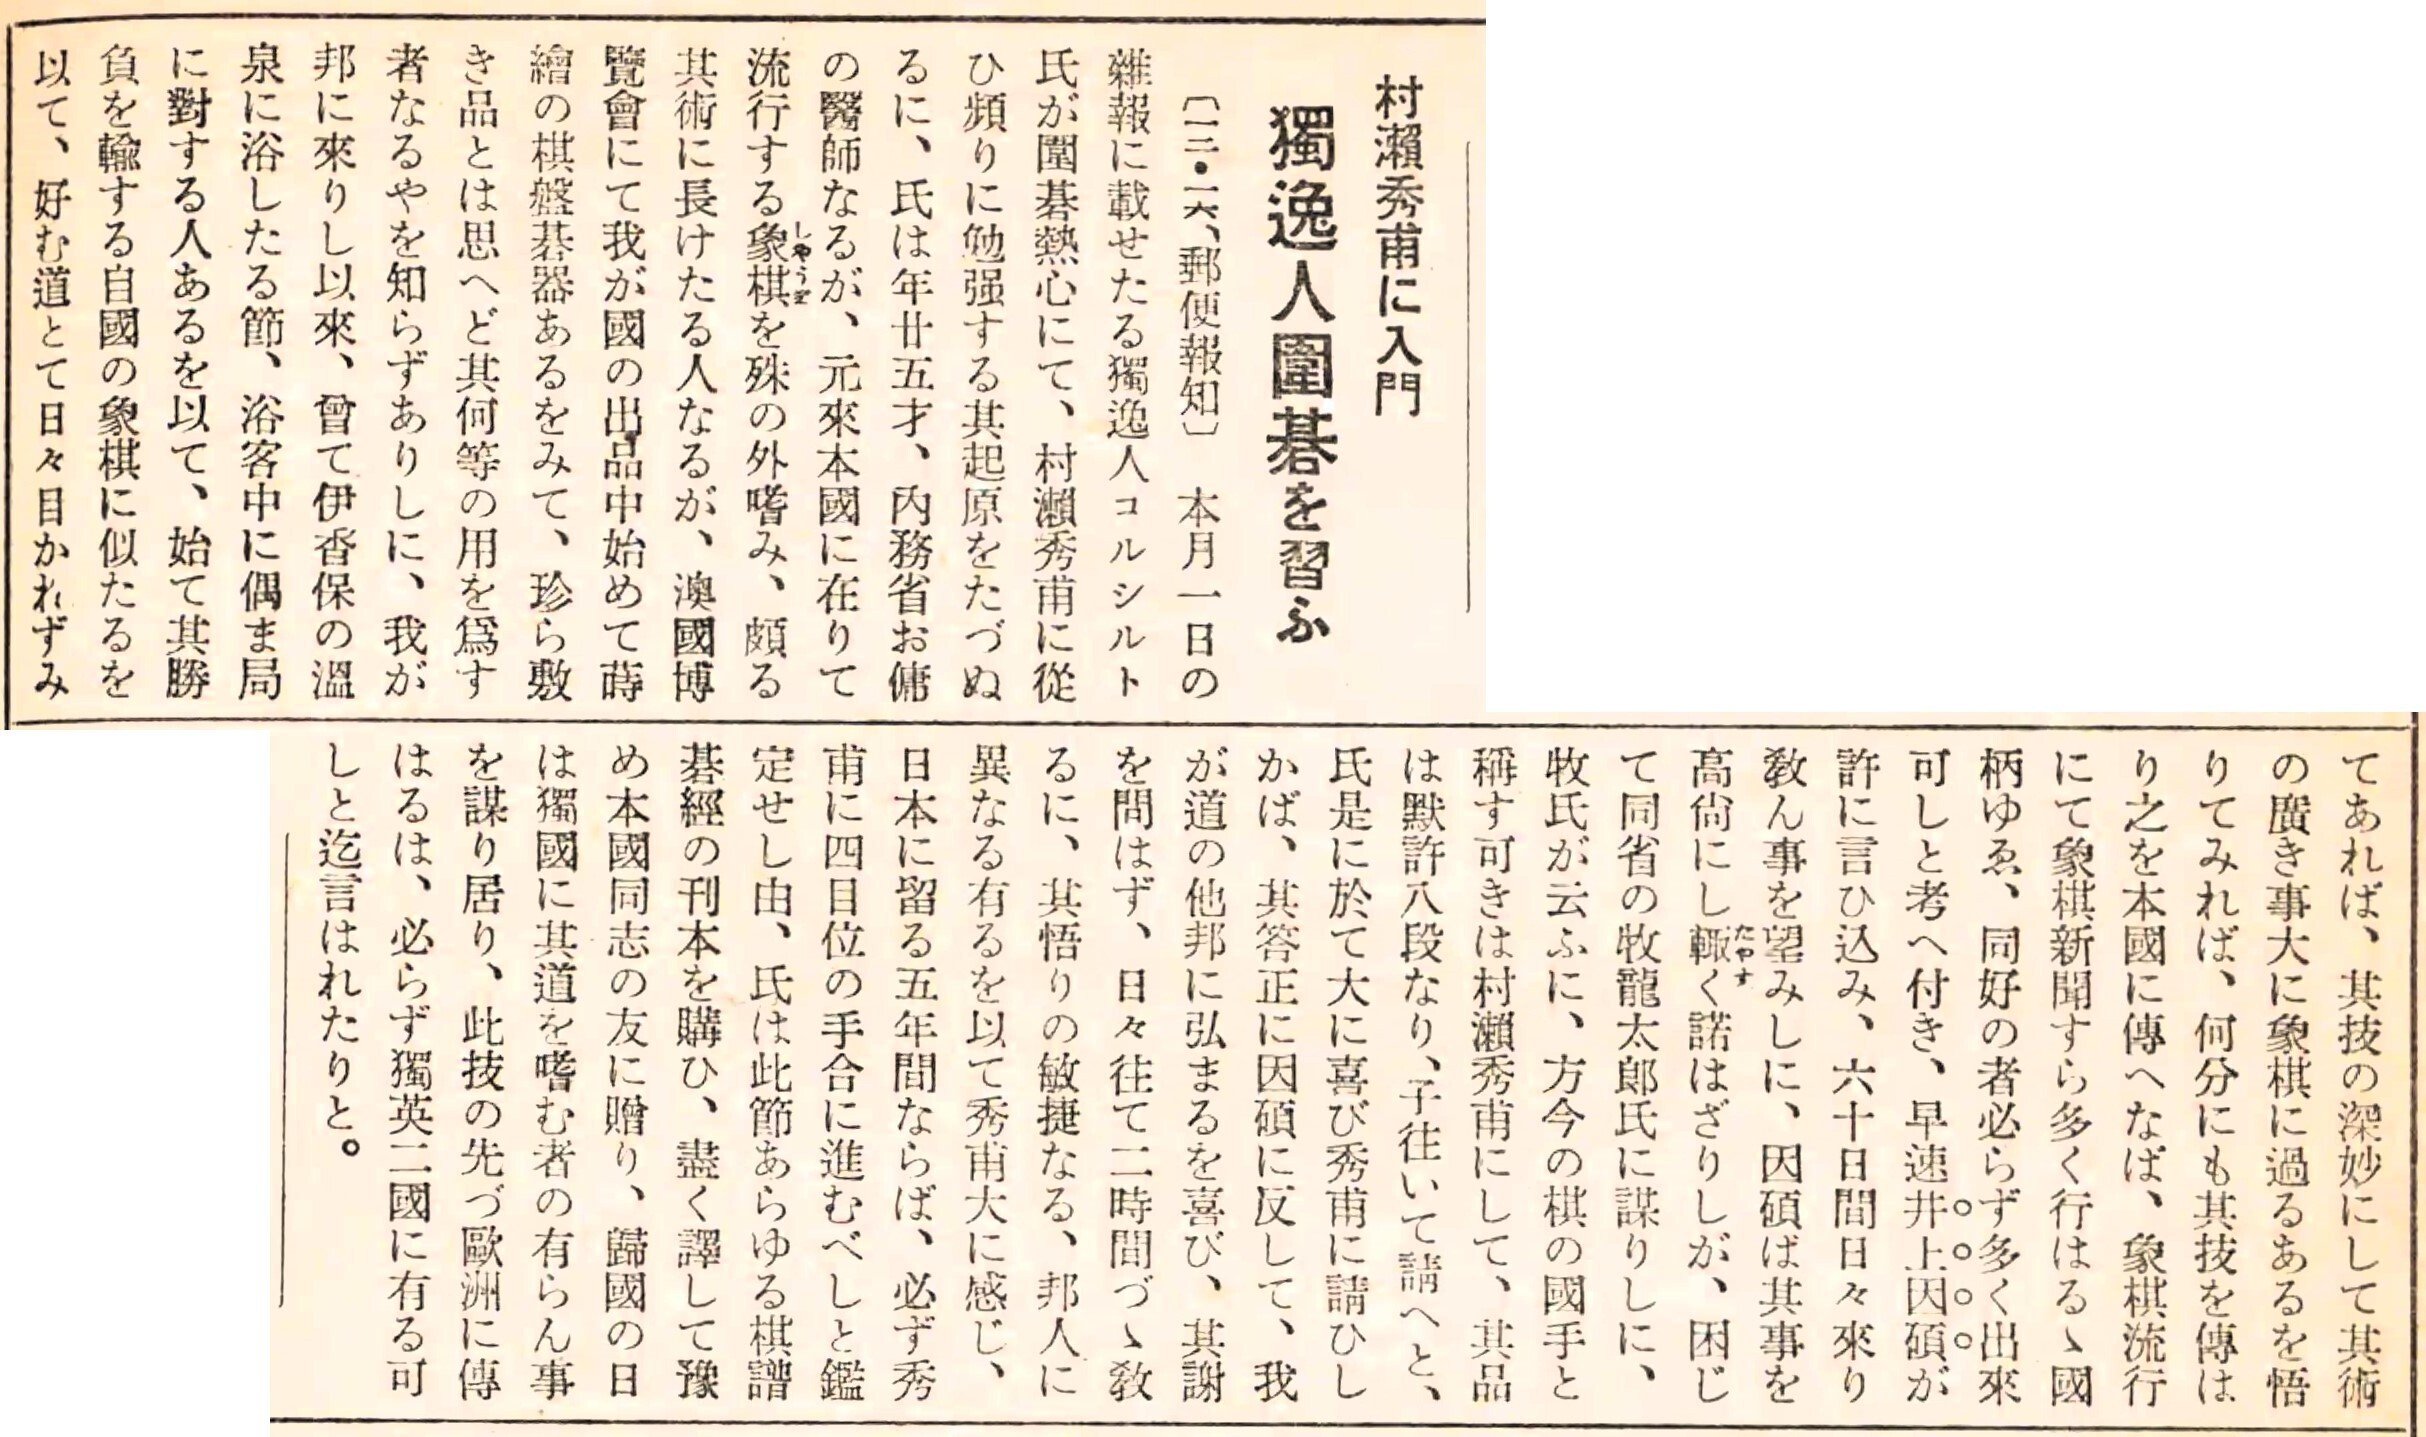 村瀨秀甫に入門
獨逸人圍碁を習ふ
〔一二・一六、郵便報知〕　本月一日の
雜報に載せたる獨逸人コルシルト
氏が圍碁熱心にて、村瀨秀甫に從
ひ頻りに勉强する其起原をたづぬ
るに、氏は年廿五才、內務省お傭
の醫師なるが、元來本國に在りて
流行する象棋を殊の外嗜み、頗る
しやうぎ
其術に長けたる人なるが、澳國博
覽會にて我が國の出品中始めて蒔
繪の棋盤碁器あるをみて、珍ら敷
き品とは思へど其何等の用を爲す
者なるやを知らずありしに、我が
邦に來りし以來、曾て伊香保の溫
泉に浴したる節、浴客中に偶ま局
に對する人あるを以て、始て其勝
負を輸する自國の象棋に似たるを
以て、好む道とて日々目かれずみ
てあれば、其技の深妙にして其術
の廣き事大に象棋に過るあるを悟
りてみれば、何分にも其技を傳は
り之を本國に傳へなば、象棋流行
にて象棋新聞すら多く行はるゝ國
柄ゆゑ、同好の者必らず多く出來
可しと考へ付き、早速井上因碩が
許に言ひ込み、六十日間日々來り
敎ん事を望みしに、因碩は其事を
高尙にし輙く諾はざりしが、困じ
たやす
て同省の牧龍太郎氏に謀りしに、
牧氏が云ふに、方今の棋の國手と
稱す可きは村瀨秀甫にして、其品
は默許八段なり、子往いて請へと、
氏是に於て大に喜び秀甫に請ひし
かば、其答正に因碩に反して、我
が道の他邦に弘まるを喜び、其謝
を問はず、日々往て二時間づゝ敎
るに、其悟りの敏捷なる、邦人に
異なる有るを以て秀甫大に感じ、
日本に留る五年間ならば、必ず秀
甫に四目位の手合に進むべしと鑑
定せし由、氏は此節あらゆる棋譜
碁經の刊本を購ひ、盡く譯して豫
め本國同志の友に贈り、歸國の日
は獨國に其道を嗜む者の有らん事
を謀り居り、此技の先づ歐洲に傳
はるは、必らず獨英二國に有る可
しと迄言はれたりと。